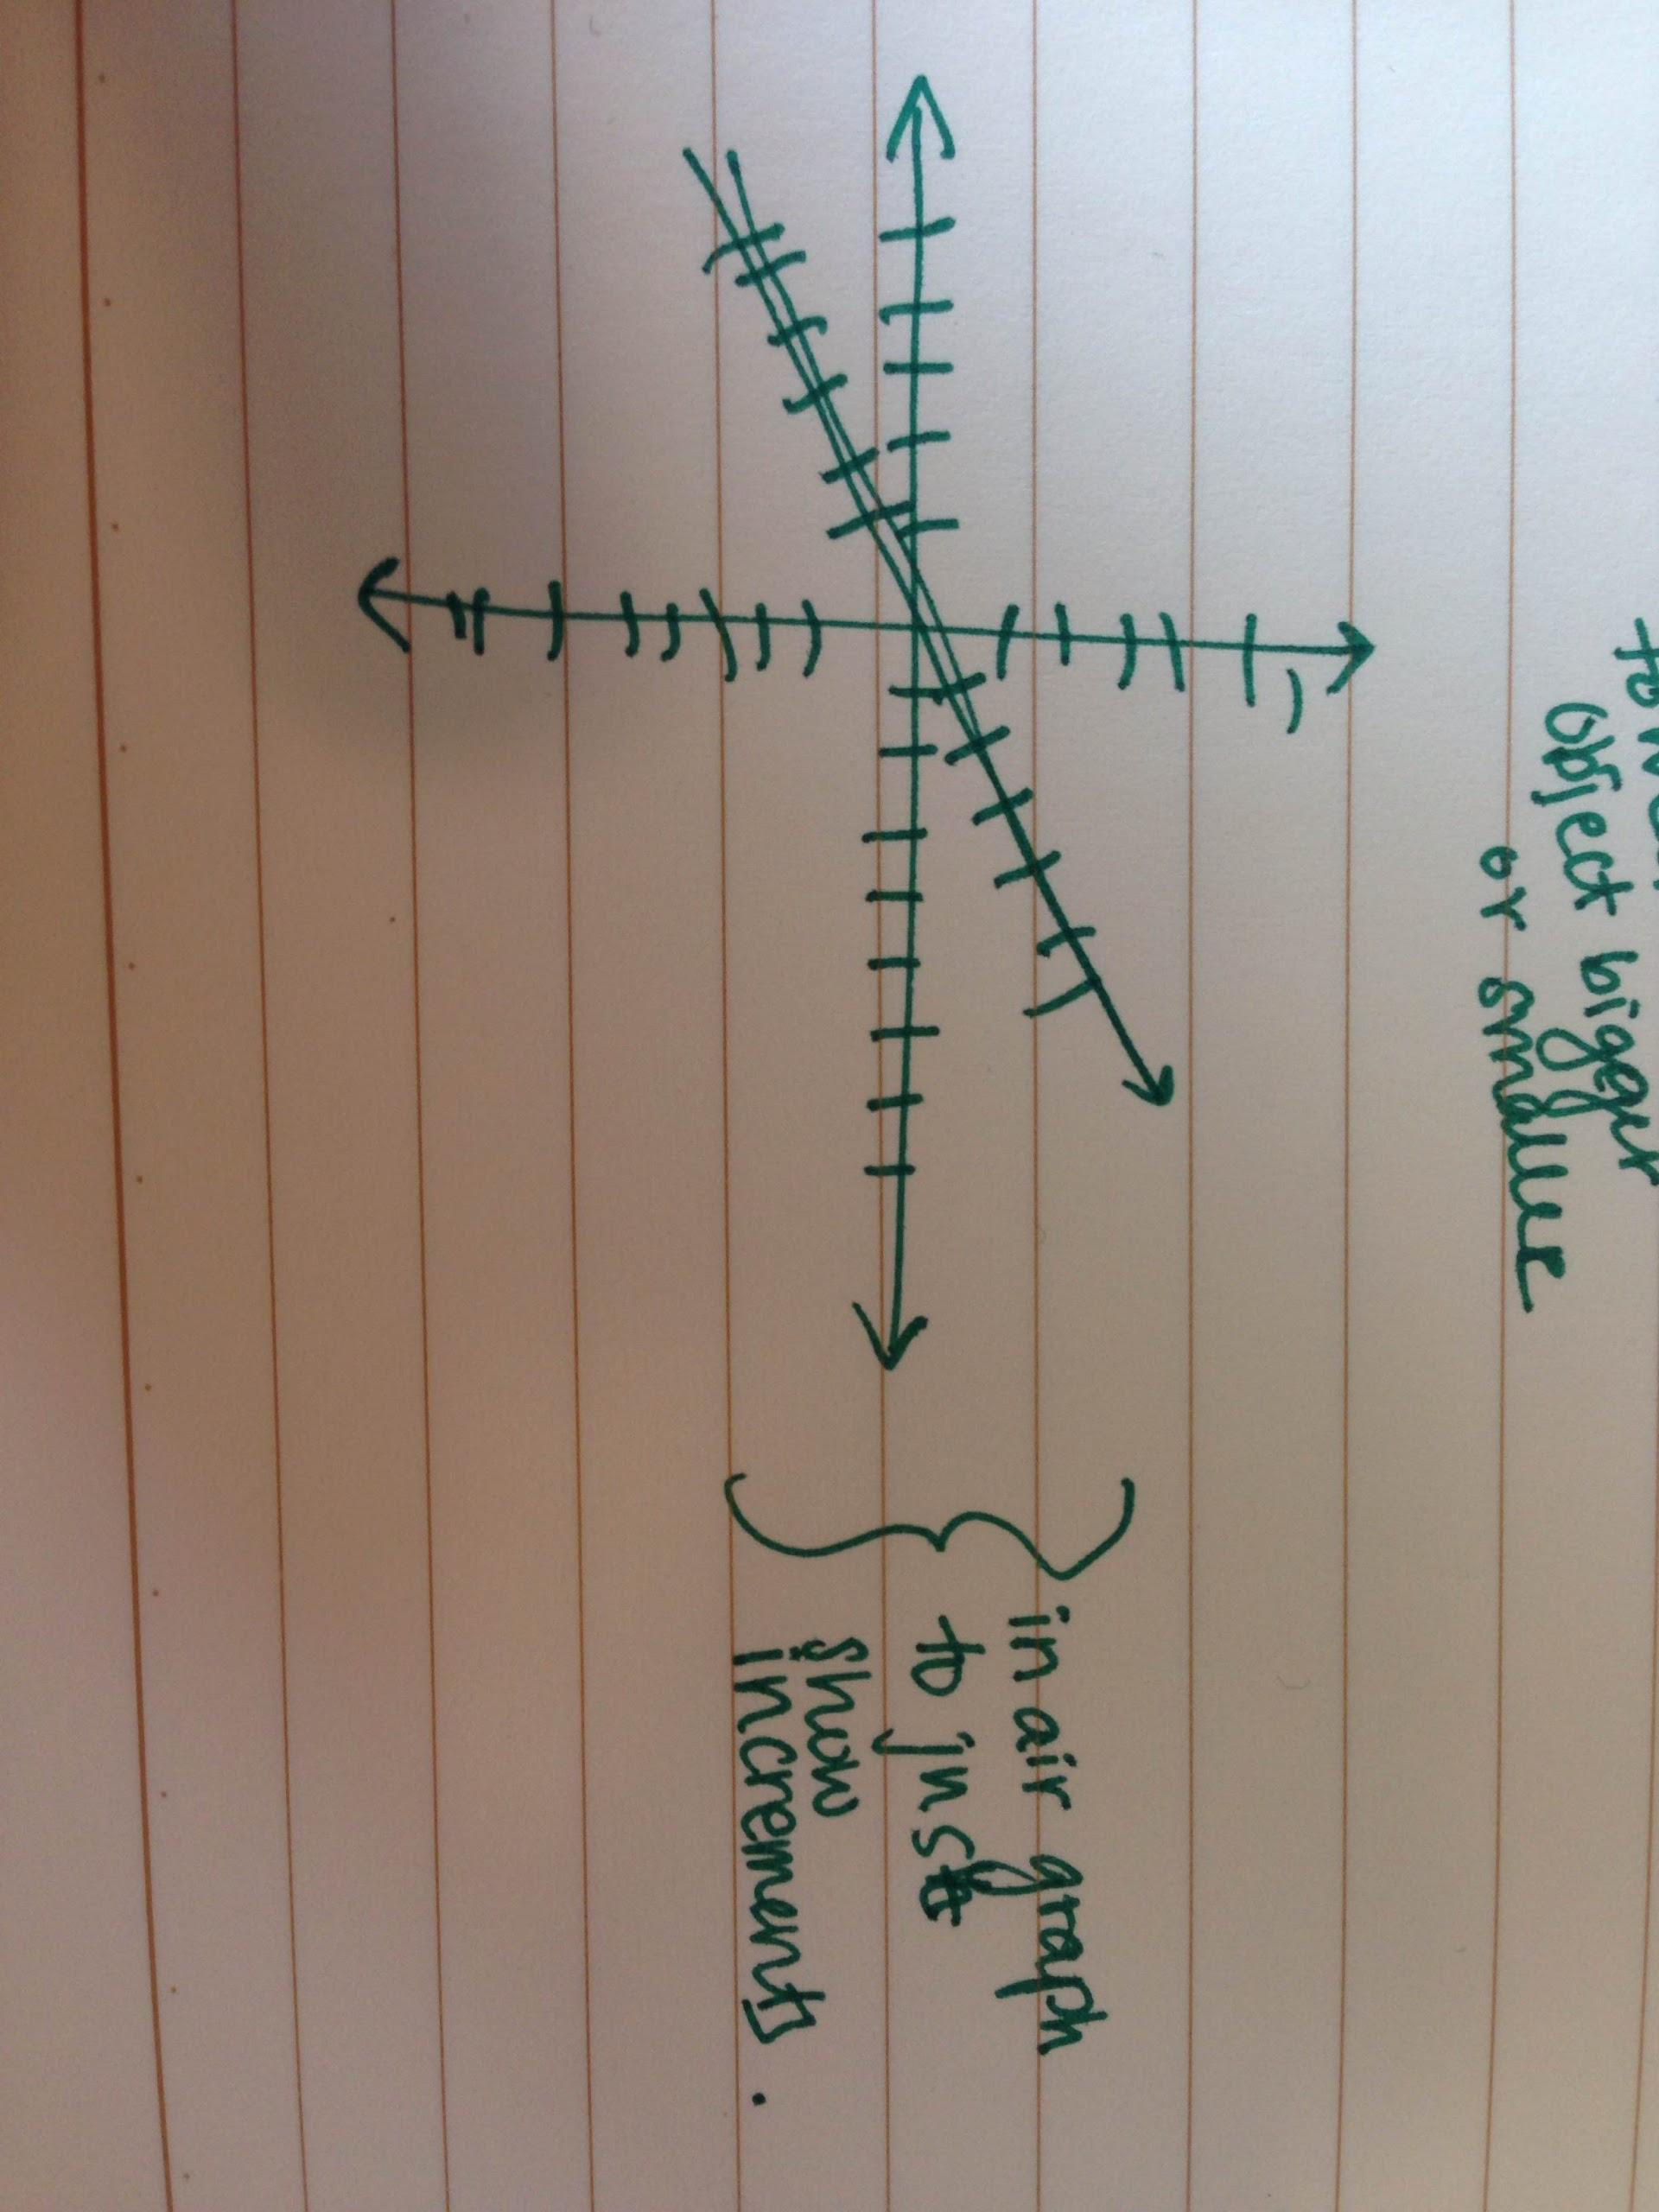 object bigger
or smaller
in air graph
to just
show
increments.